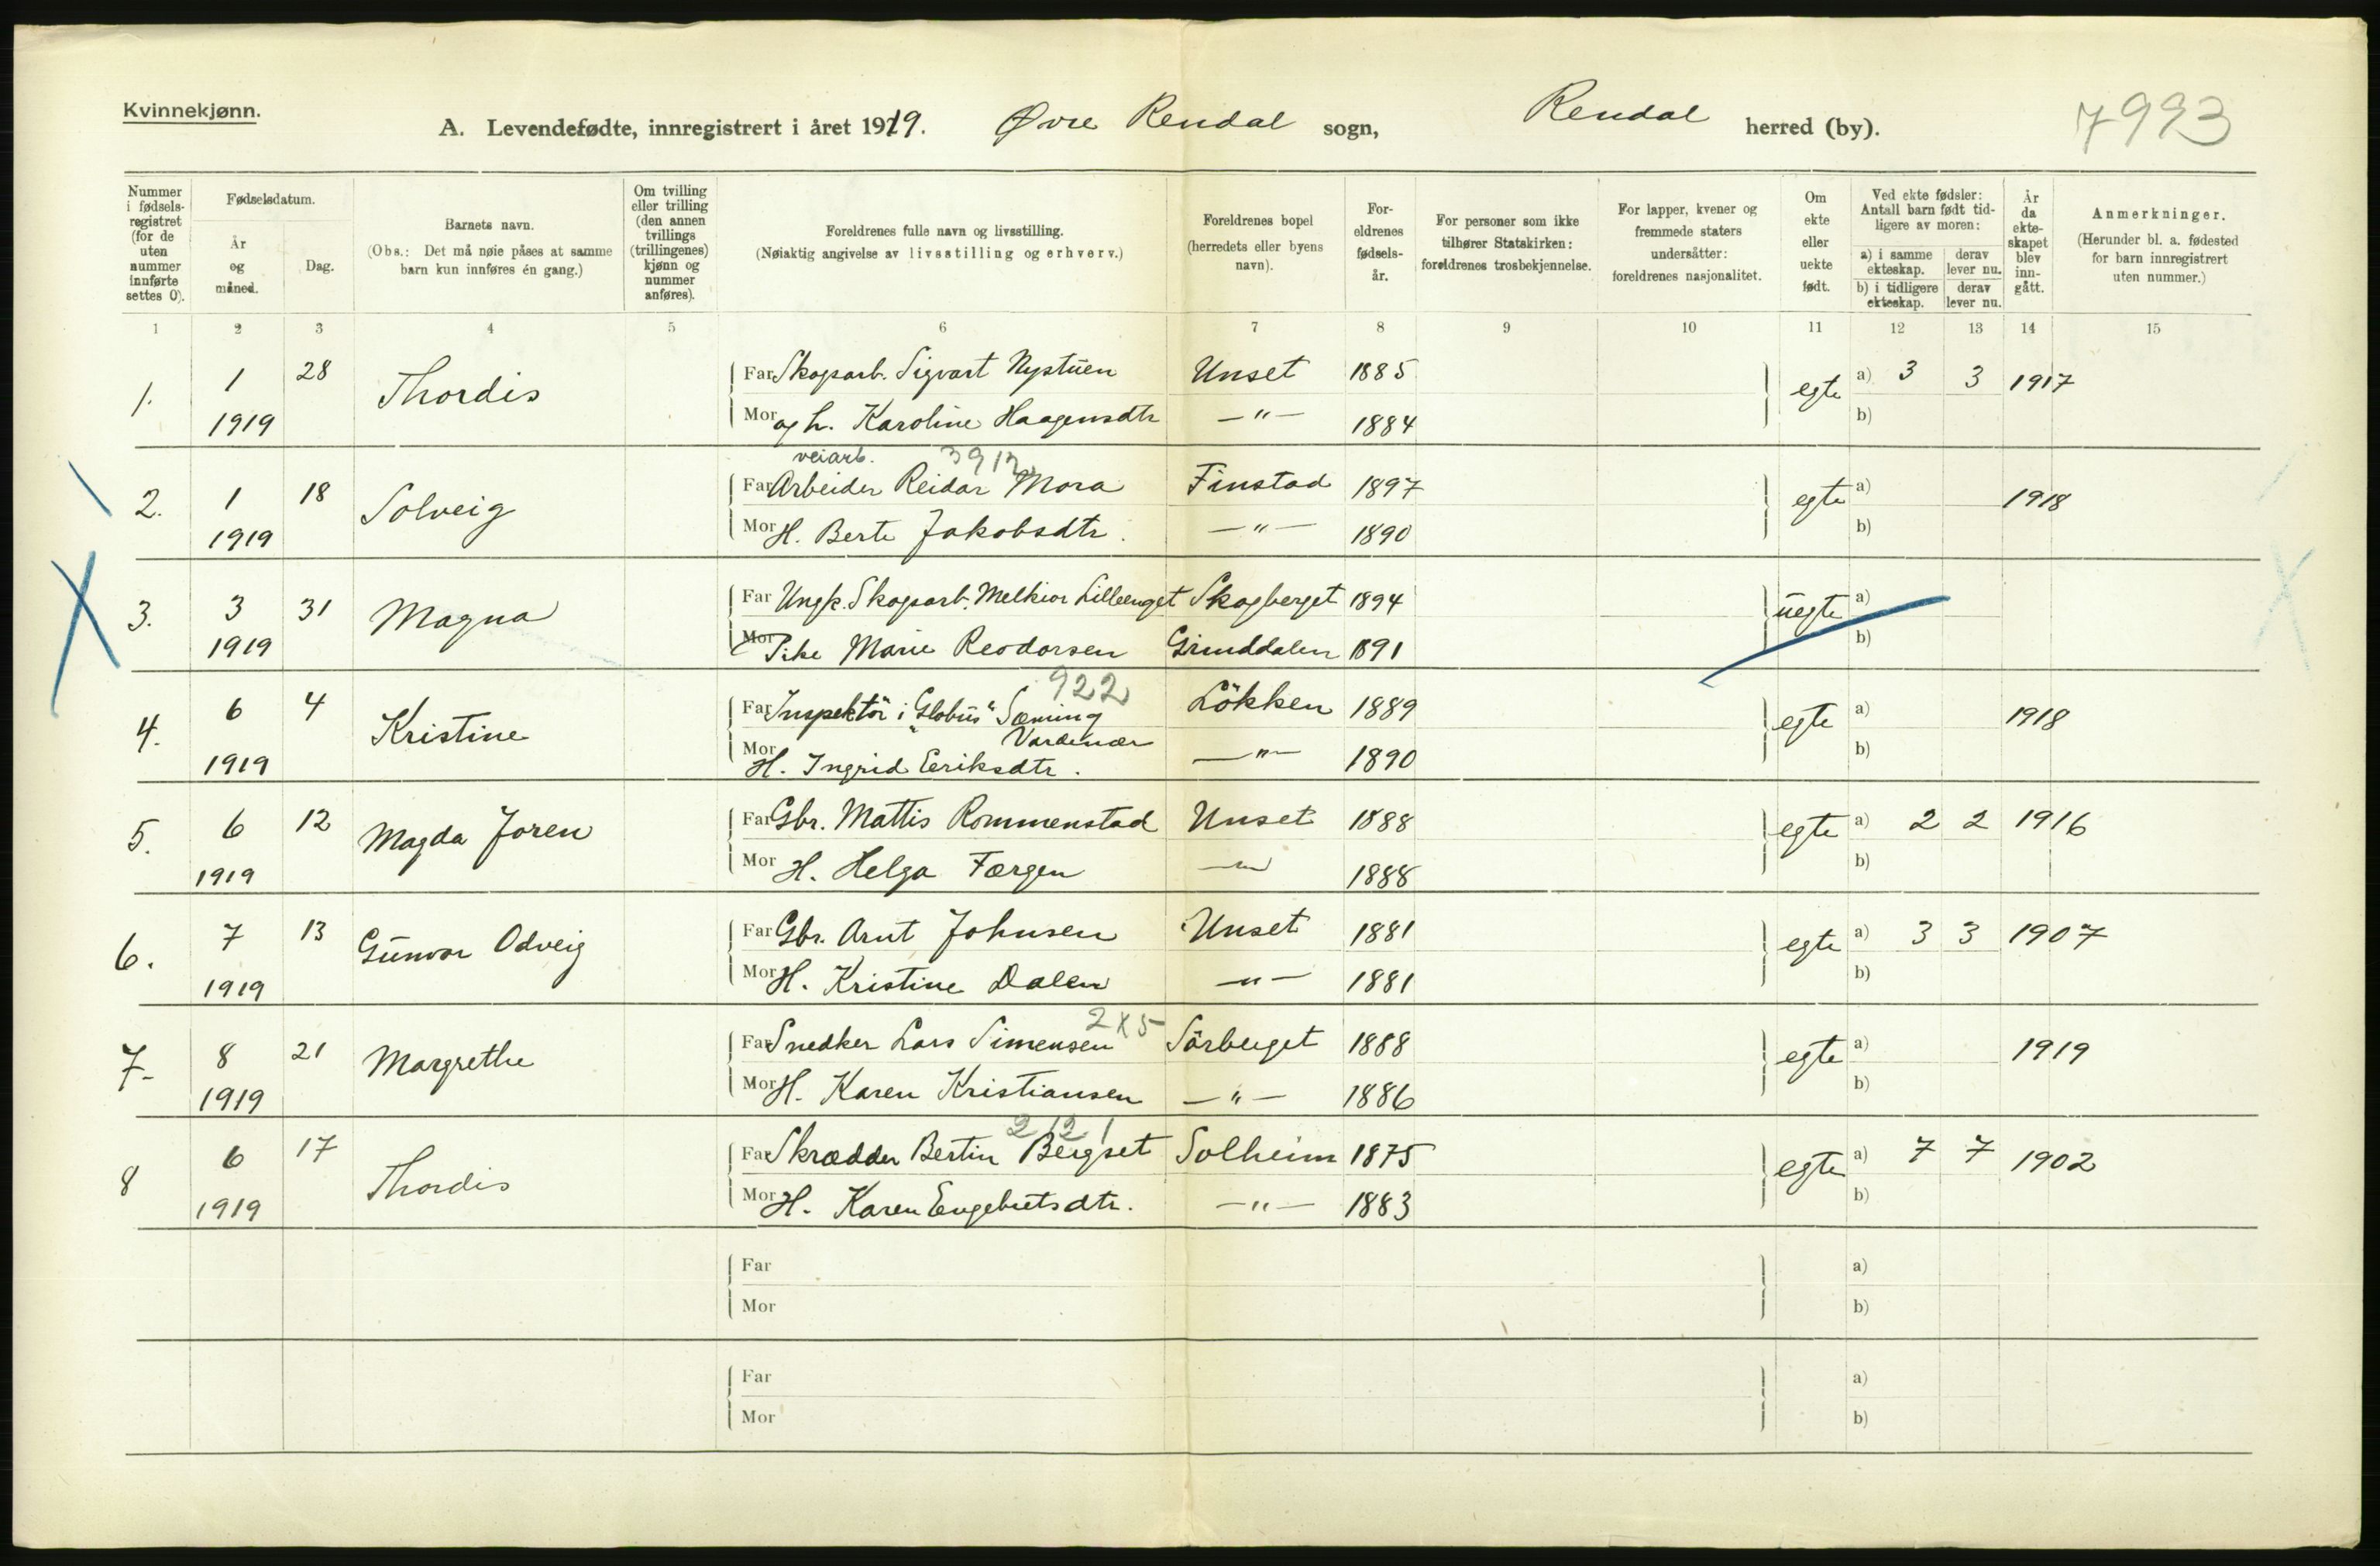 Kvinnekjønn.
A. Levendefødte, innregistrert i året 1919. Øvre Rendal sogn, Rendal herred (by). 7993
Nummer i fødselsregistret (for de uten nummer innførte settes 0).
Fødselsdatum.
År og måned.
Dag.
Barnets navn.
(Obs.: Det må nøie påses at samme barn kun innføres én gang.)
Om tvilling eller trilling (den annen tvillings (trillingenes) kjønn og nummer anføres).
Foreldrenes fulle navn og livsstilling.
(Nøiaktig angivelse av livsstilling og erhverv.)
Foreldrenes bopel (herredets eller byens navn).
Foreldrenes fødselsår.
For personer som ikke tilhører Statskirken: foreldrenes trosbekjennelse.
For lapper, kvener og fremmede staters undersåtter: foreldrenes nasjonalitet.
Om ekte eller uekte født.
Ved ekte fødsler: Antall barn født tidligere av moren:
a) i samme ekteskap. derav lever nu.
b) i tidligere ekteskap. derav lever nu.
År da ekteskapet blev inngått.
Anmerkninger.
(Herunder bl. a. fødested for barn innregistrert uten nummer.)
1 2 3 4 5 6 7 8 9 10 11 12 13 14 15
1. 1 1919 28 Thordis Far Skogsarb. Sigvart Nystuen Unset 1885 egte a) 3 3 1917
Mor og h. Karoline Haagensdtr —"— 1884 b)
veiarb. 3912
2. 1 1919 18 Solveig Far Arbeider Reidar Mora Finstad 1897 egte a) 1918
Mor H. Berte Jakobsdtr. —"— 1890 b)
3. 3 1919 31 Magna Far Ungk. Skogsarb. Melkior Lilleenget Skogberget 1894 uegte a)
Mor Pike Marie Reodorsen Grinddalen 1891 b)
922
4. 6 1919 4 Kristine Far Inspektör i "Globus" Sæming Vardenær Lökken 1889 egte a) 1918
Mor H. Ingrid Eeriksdtr. —"— 1890 b)
5. 6 1919 12 Magda Joren Far Gbr. Mattis Rommenstad Unset 1888 egte a) 2 2 1916
Mor H. Helga Færgen —"— 1888 b)
6. 7 1919 13 Gunvor Odveig Far Gbr. Arnt Johnsen Unset 1881 egte a) 3 3 1907
Mor H. Kristine Dalen —"— 1881 b)
2X5
7. 8 1919 21 Margrethe Far Snedker Lars Simensen Sörberget 1888 egte a) 1919
Mor H. Karen Kristiansen —"— 1886 b)
2121
8 6 1919 17 Thordis Far Skrædder Bertin Bergset Solheim 1875 egte a) 7 7 1902
Mor H. Karen Engebretsdtr. —"— 1883 b)
Far a)
Mor b)
Far a)
Mor b)